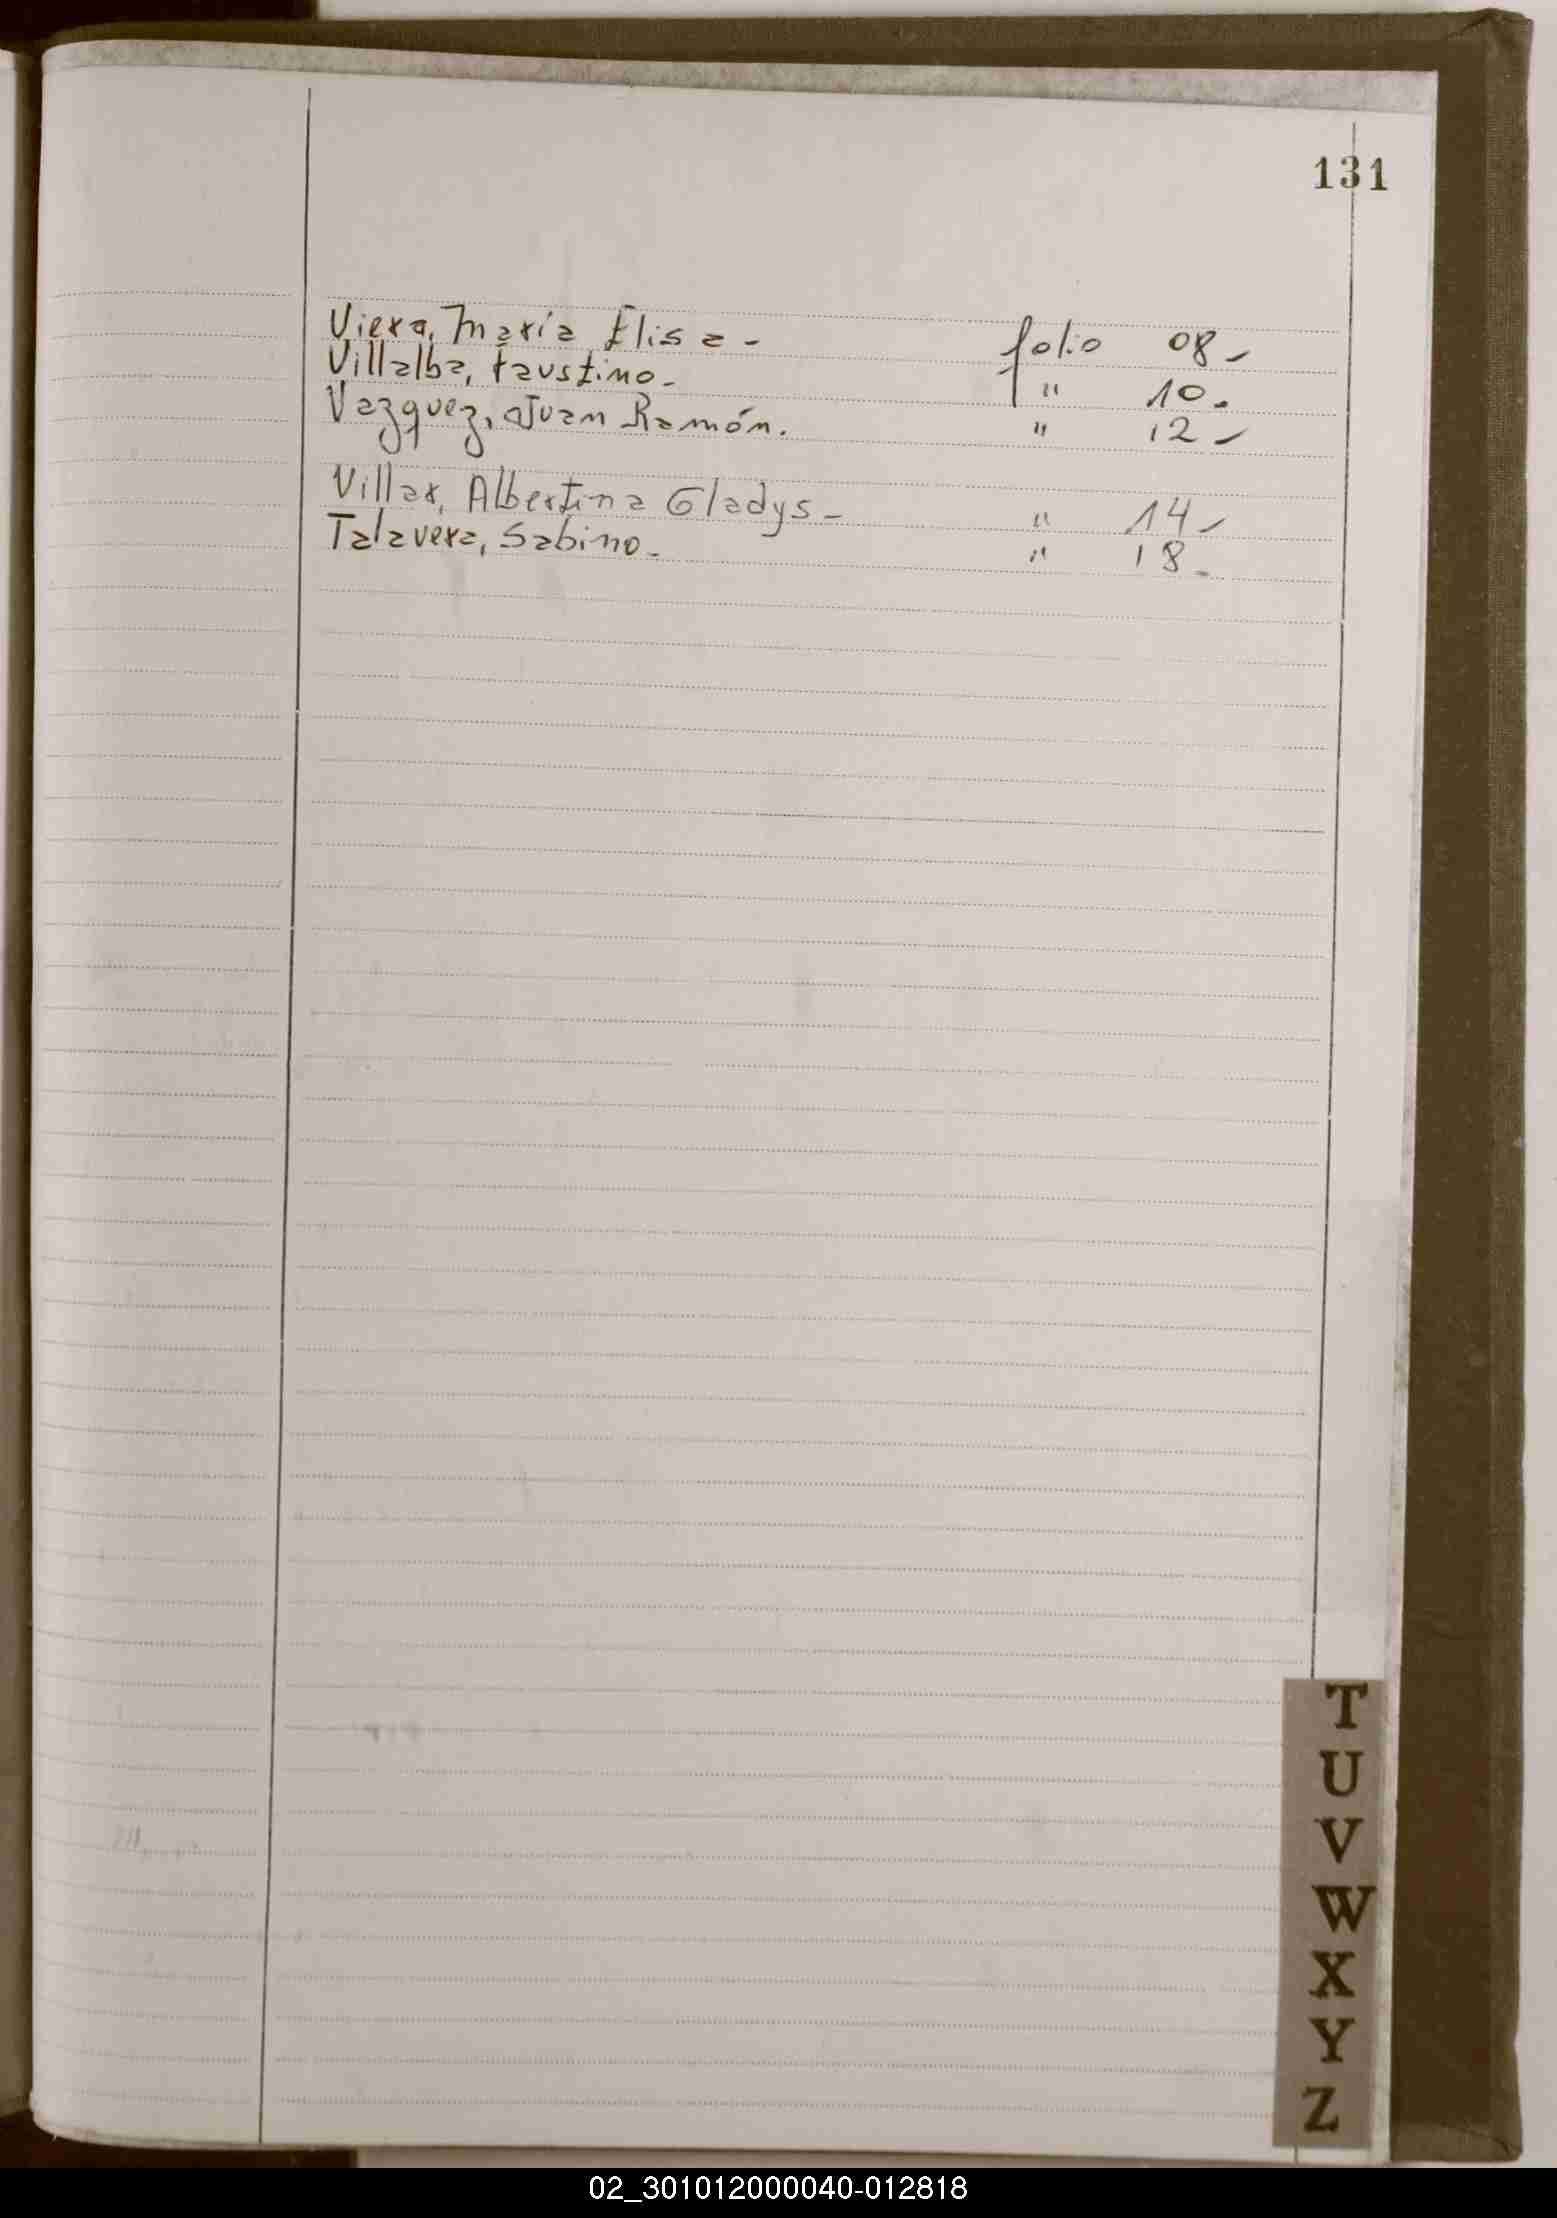 131
Viera, María Elisa - folio 08 -
Villalba, Faustino - " 10.
Vazquez, Juan Ramón. " 12 -
Villar, Albertina Gladys - " 14 -
Talavera, Sabino - " 18 -
T
U
V
W
X
Y
Z
02_301012000040-012818